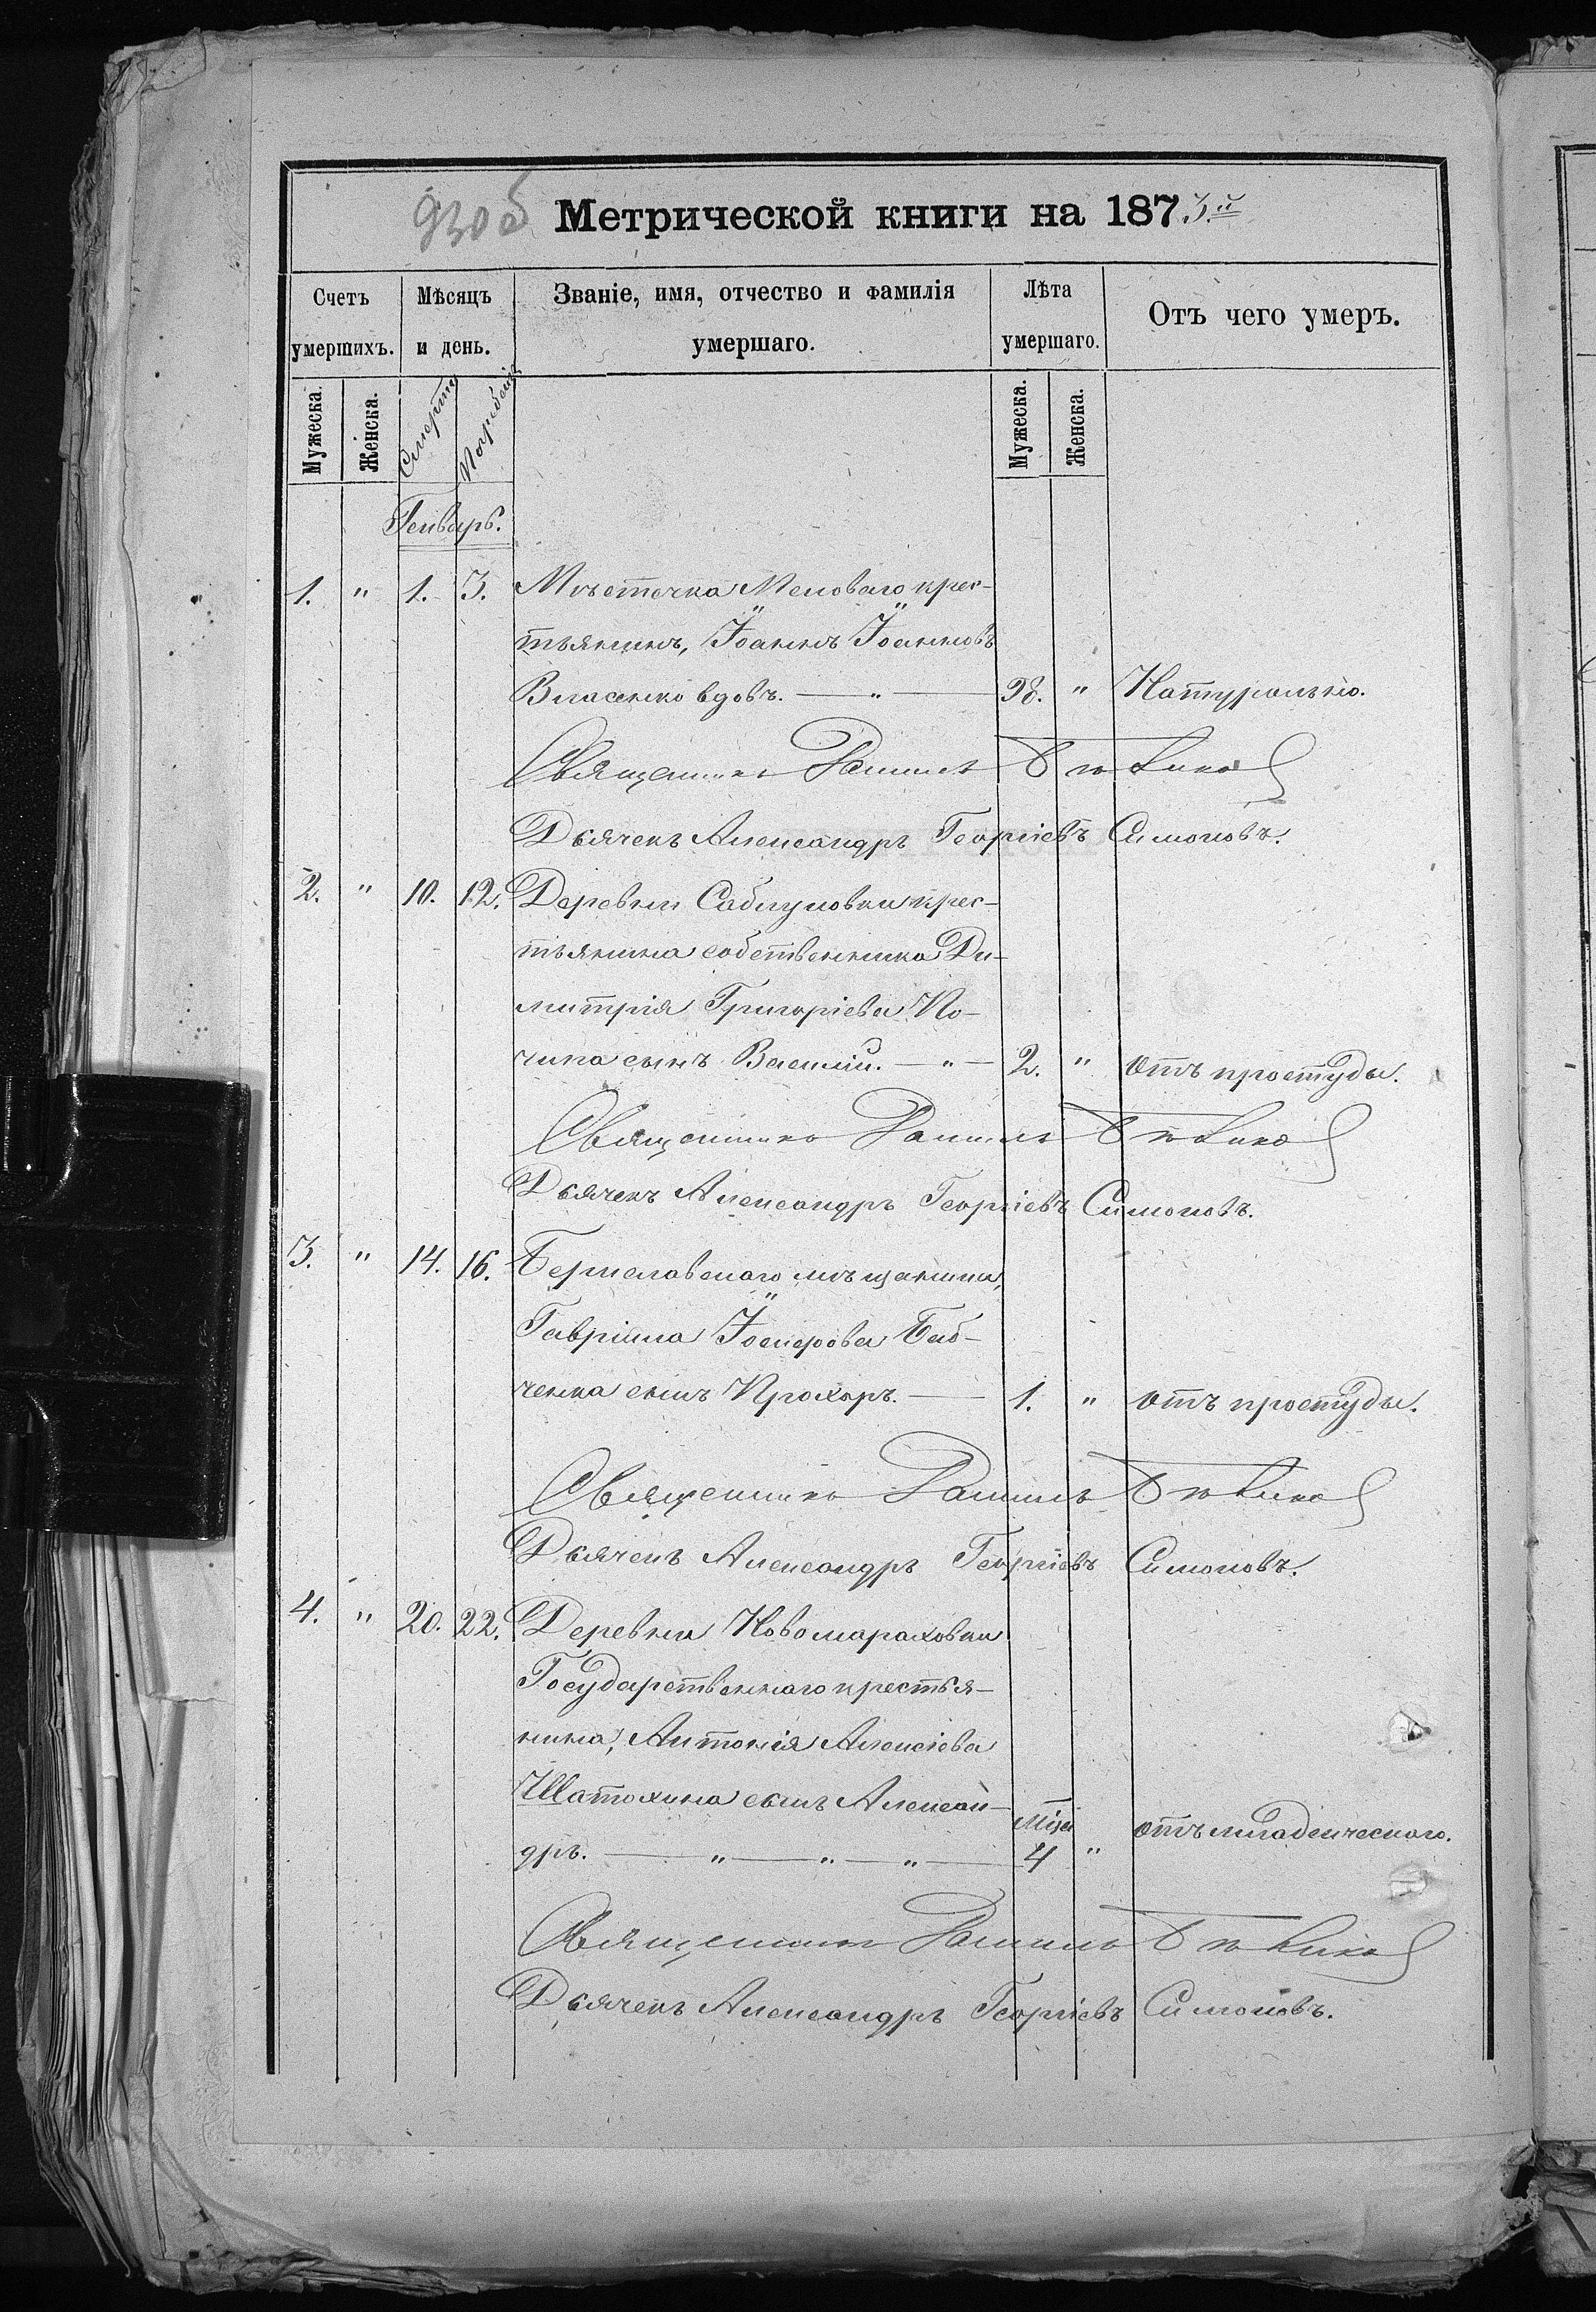 930об Метрической книги на 1873.й
Счетъ умершихъ. Мѣсяцъ и день. Званіе, имя, отчество и фамилія умершаго. Лѣта умершаго. Отъ чего умеръ.
Мужеска. Женска. Смерти Погребенія Мужеска. Женска.
Генварь.
1. " 1. 3. Мѣстечка Меловаго крес-
тьянинъ, Іоаннъ Іоанновъ
Власенко вдовъ. — " — 98. " Натурально.
Священникъ Даниилъ
Дьячекъ Александръ Георгіевъ Симоновъ.
2. " 10. 12. Деревни Саблуковки крес-
тьянина собственника Ди-
митрія Григоріева По-
чипа сынъ Василій. — " — 2. " отъ простуды.
Священникъ Даниилъ
Дьячекъ Александръ Георгіевъ Симоновъ.
3. " 14. 16. Бериславскаго мѣщанина,
Гавріила Іосифова Баб-
ченка сынъ Прохоръ. — 1. " отъ простуды.
Священникъ Даниилъ
Дьячекъ Александръ Георгіевъ Симоновъ.
4. " 20. 22. Деревни Новомараховки
Государственнаго крестья-
нина, Антонія Алексіева
Шатохина сынъ Алексан-
дръ. — " — " — " — Мѣся 4 " отъ младенческаго.
Священникъ Даниилъ
Дьячекъ Александръ Георгіевъ Симоновъ.